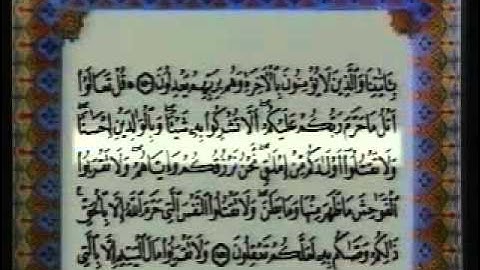 بِـَٔايَٰتِنَا وَٱلَّذِينَ لَا يُؤْمِنُونَ بِٱلْءَاخِرَةِ وَهُم بِرَبِّهِمْ يَعْدِلُونَ ١٥٠ ۞ قُلْ تَعَالَوْا۟
أَتْلُ مَا حَرَّمَ رَبُّكُمْ عَلَيْكُمْ أَلَّا تُشْرِكُوا۟ بِهِۦ شَيْـًٔا وَبِٱلْوَٰلِدَيْنِ إِحْسَٰنًا
وَلَا تَقْتُلُوٓا۟ أَوْلَٰدَكُم مِّنْ إِمْلَٰقٍ نَّحْنُ نَرْزُقُكُمْ وَإِيَّاهُمْ وَلَا تَقْرَبُوا۟
ٱلْفَوَٰحِشَ مَا ظَهَرَ مِنْهَا وَمَا بَطَنَ وَلَا تَقْتُلُوا۟ ٱلنَّفْسَ ٱلَّتِى حَرَّمَ ٱللَّهُ إِلَّا بِٱلْحَقِّ
ذَٰلِكُمْ وَصَّىٰكُم بِهِۦ لَعَلَّكُمْ تَعْقِلُونَ ١٥١ وَلَا تَقْرَبُوا۟ مَالَ ٱلْيَتِيمِ إِلَّا بِٱلَّتِى